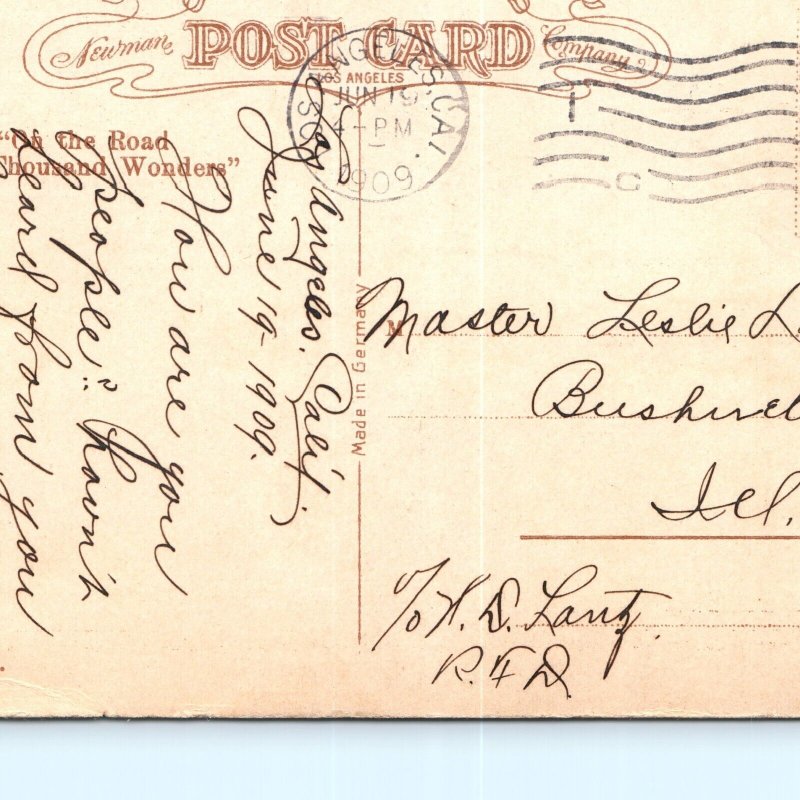 Newman POST CARD Company
LOS ANGELES, CAL.
LOS ANGELES
JUN 19
4-PM
1909
"On the Road
Thousand Wonders"
Los Angeles. Calif.
June 19-1909.
How are you
people? Havn't
heard from you
Made in Germany
M
Master Leslie
Ill.
c/o H. D. Lantz.
R. F. D.